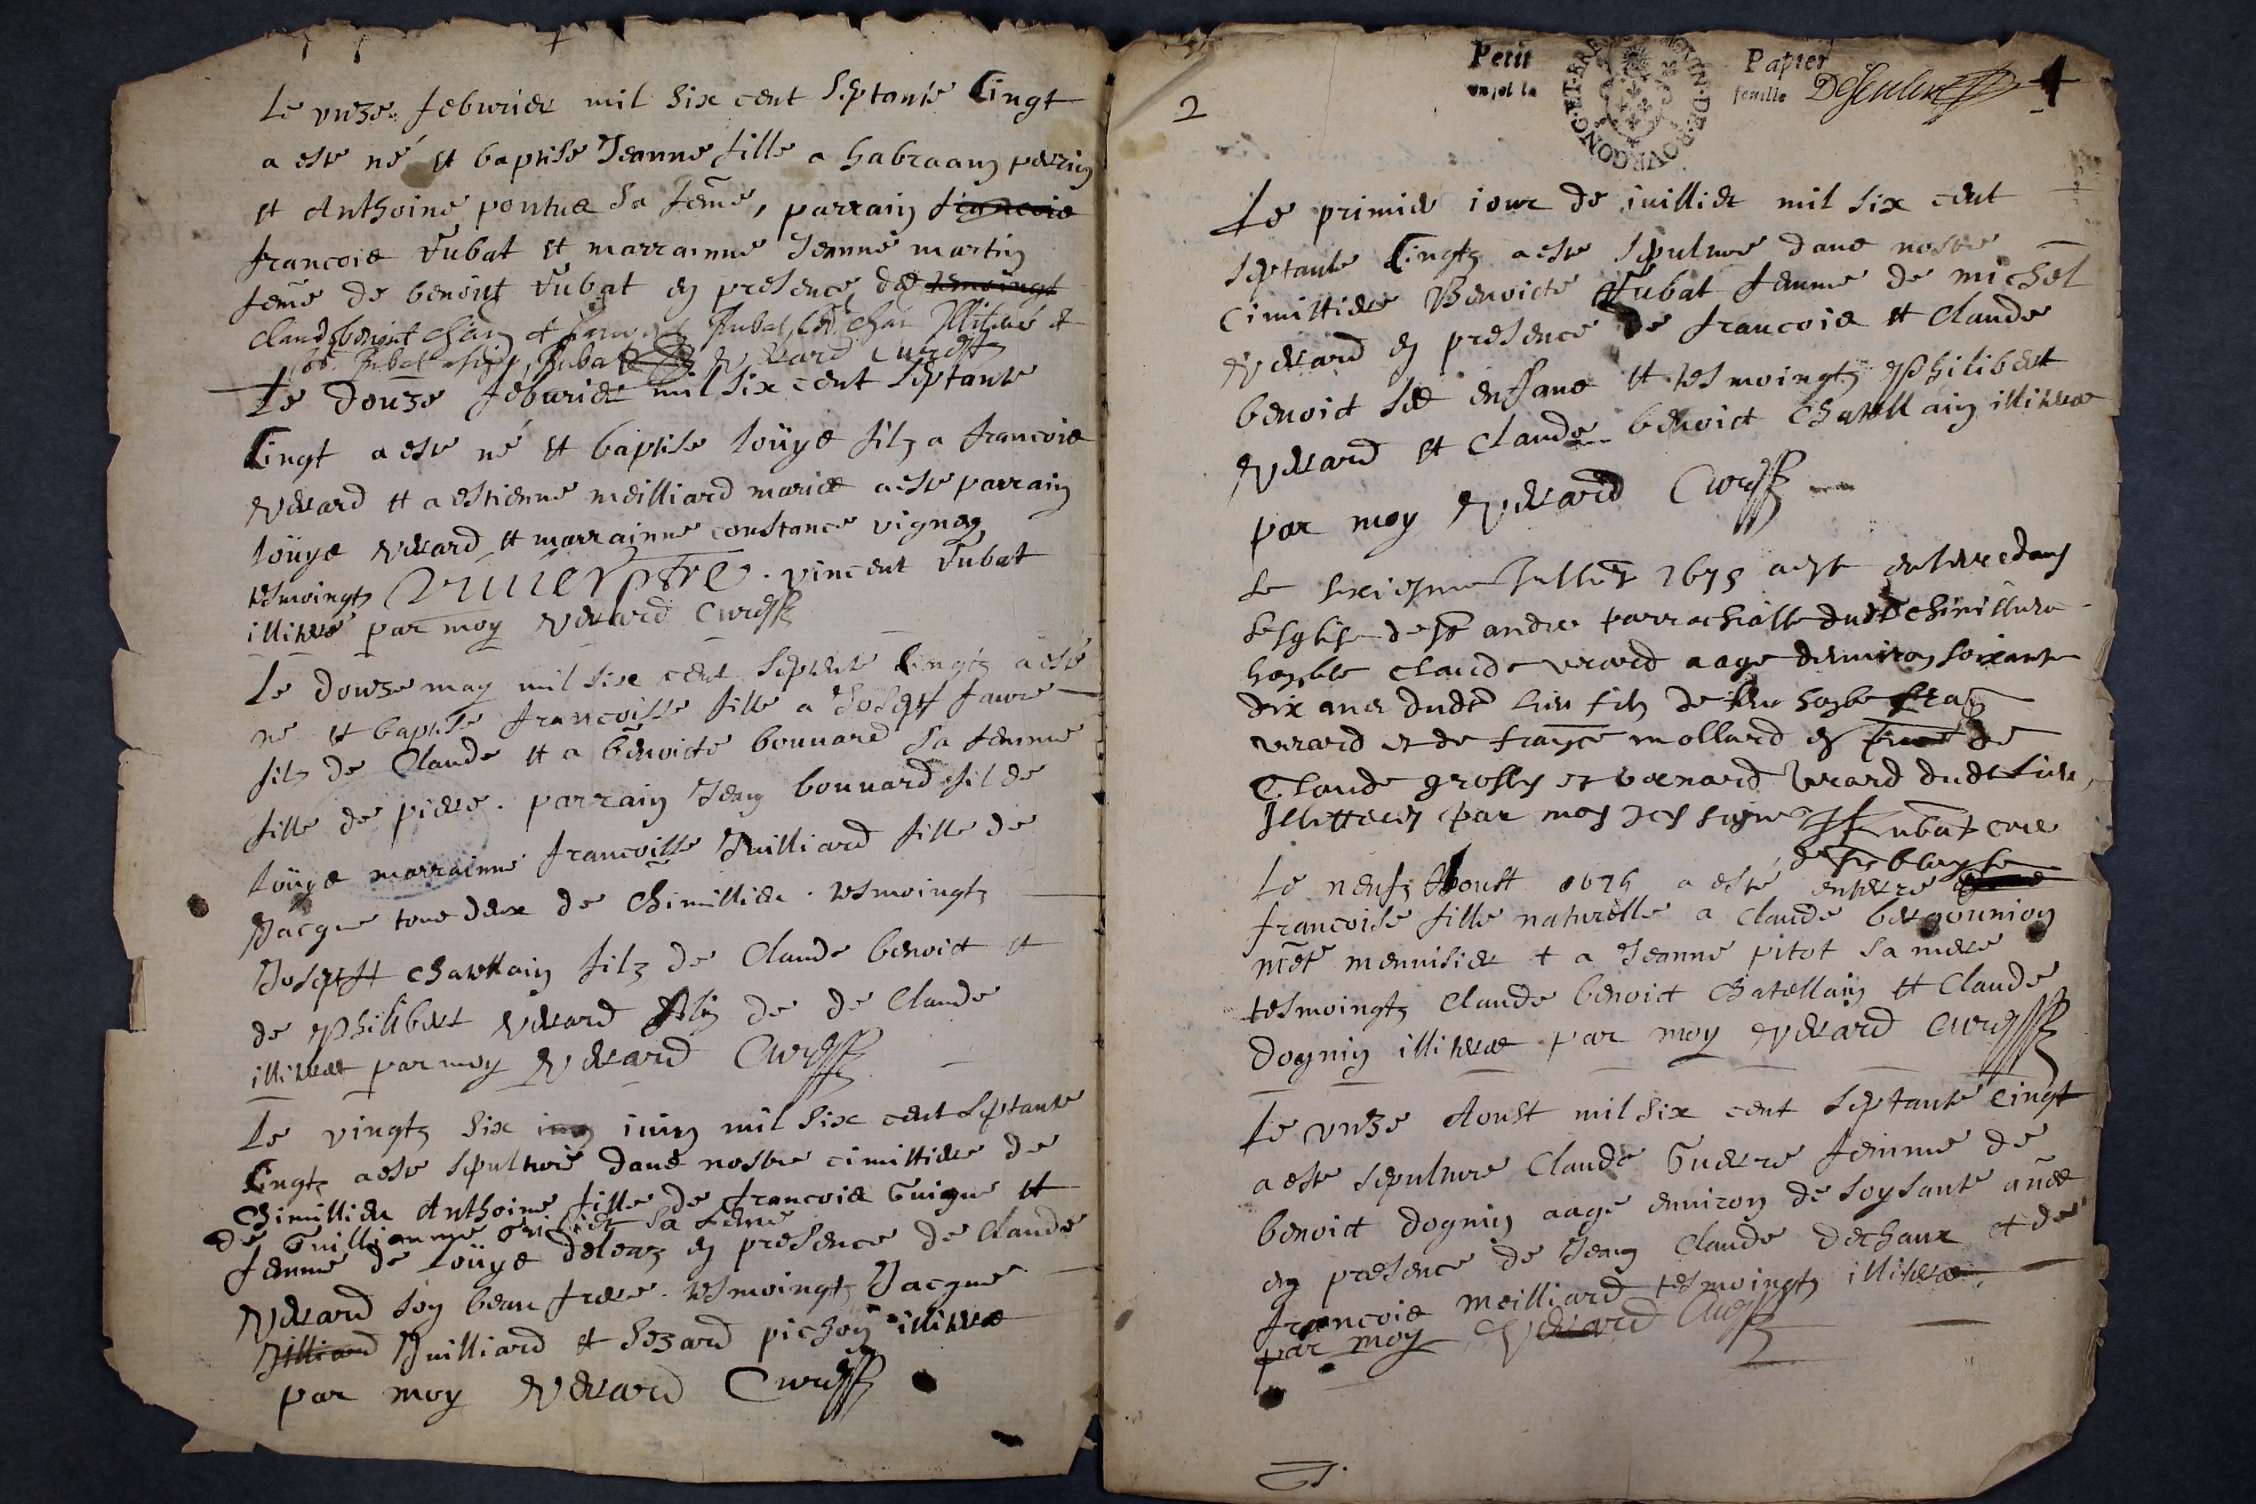 Le unze feburier mil six cent septante Cingt
a este né et baptise Jeanne fille a habraam perrin
et Anthoine pontus sa feme, parrain francois
francois Fubat et marrainne Jeanne martin
feme de benoist Fubat en presence des tesmoingt
Claud benoist et Fubat illiteré et
Fubat Verard Cure
Le douze feburier mil six cent septante
Cingt a este né et baptise loüys filz a francois
Verard et a estienne meilliard mariés a este parrain
loüys Verard et marrainne constance vignon
tesmoingtz . vincent Fubat
illiteré par moy Verard Cure
Le douze may mil six cent septente Cingtz a esté
né et baptise francoisse fille a Joseph favre
filz de Claude et a benoicte bonnard sa femme
fille de piere . parrain Jean bonnard fil de
loüys marrainne francoisse Juilliard fille de
Jacque tous deux de Chimillieu . tesmoingtz
Joseph Chatellain filz de Claude benoict et
de philibert Verard filz de de Claude
illiteres par moy Verard Cure
Le vingtz six juin mil six cent septante
Cingtz a este sepulturé dans nostre cimittiere de
Chimillieu Anthoine fille de francois Guigue et
de Guillianme sa feme
femme de loüys deleaz en presence de Claude
Verard son beau frere . tesmoingtz Jacque
Jilliard Juilliard et sezard pichon illiteres
par moy Verard Cure
2
Petit Papier
un sol la feuille
Le primier iour de iuillier mil six cent
septante Cingtz a este sepulture dans nostre
Cimittiere Benoicte Fubat femme de michel
Verard en presence de francois et Claude
benoict ses enfans et tesmoingtz philibert
Verard et Claude benoict Chatellain illiteres
par moy Verard Cure
Le sixiesme Juillet 1675 a este enterre dans
lesglise de st andre parrochialle dudt chimillieu
honble Claude verard aage denviron soixante
dix ans dudt lieu filz de feu honble fran
verard et de france mollard en de
Claude grossy et bernard Verard dudt lieu
Illitteres par moy Jcy signe Fubat cure
de st blayse
Le neufz Aoust 1675 a esté enterre
francoise fille naturelle a Claude bergounion
met mennisier et a Jeanne pitot sa mere
tesmoingtz Claude benoict Chatellain et Claude
Dognin illiteres par moy Verard Cure
Le unze Aoust mil six cent septante cingt
a este sepulture Claude Guerre femme de
benoict dognin aage environ de soysante anés
en presence de Jean Claude dechaux et de
francois meilliard tesmoingtz illiteres
par moy Verard Cure